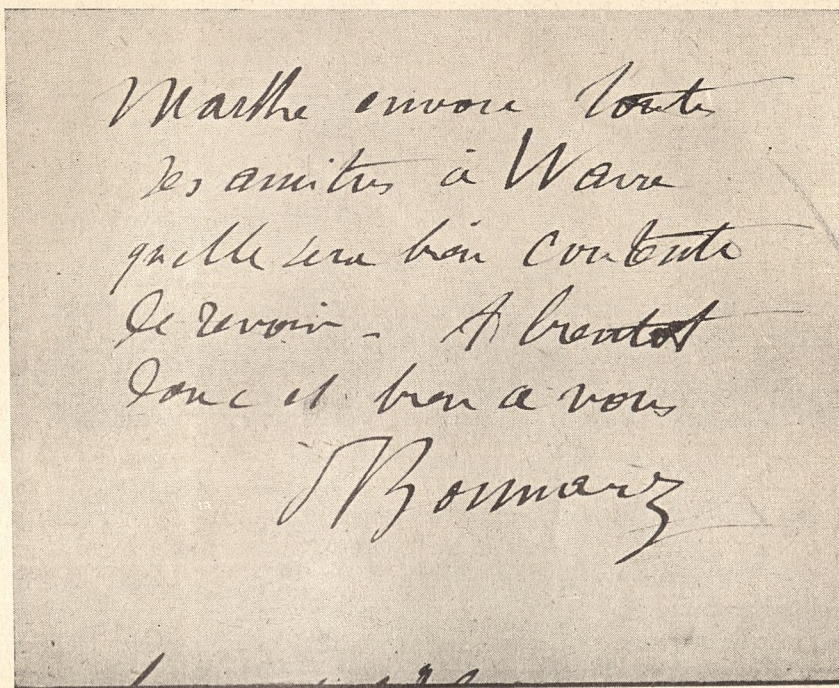 Marthe envoie toutes
ses amitiés à Wavre
qu'elle sera bien contente
de revoir - A bientot
donc et bien a vous
PBonnard